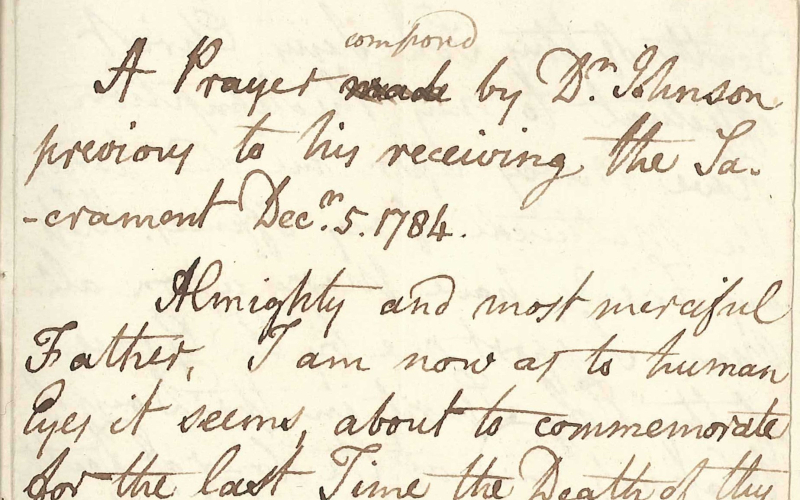 composed
A Prayer made by Dr. Johnson
previous to his receiving the Sa-
-crament Decr. 5. 1784.
Almighty and most merciful
Father, I am now as to human
Eyes it seems, about to commemorate
for the last Time the Death of thy